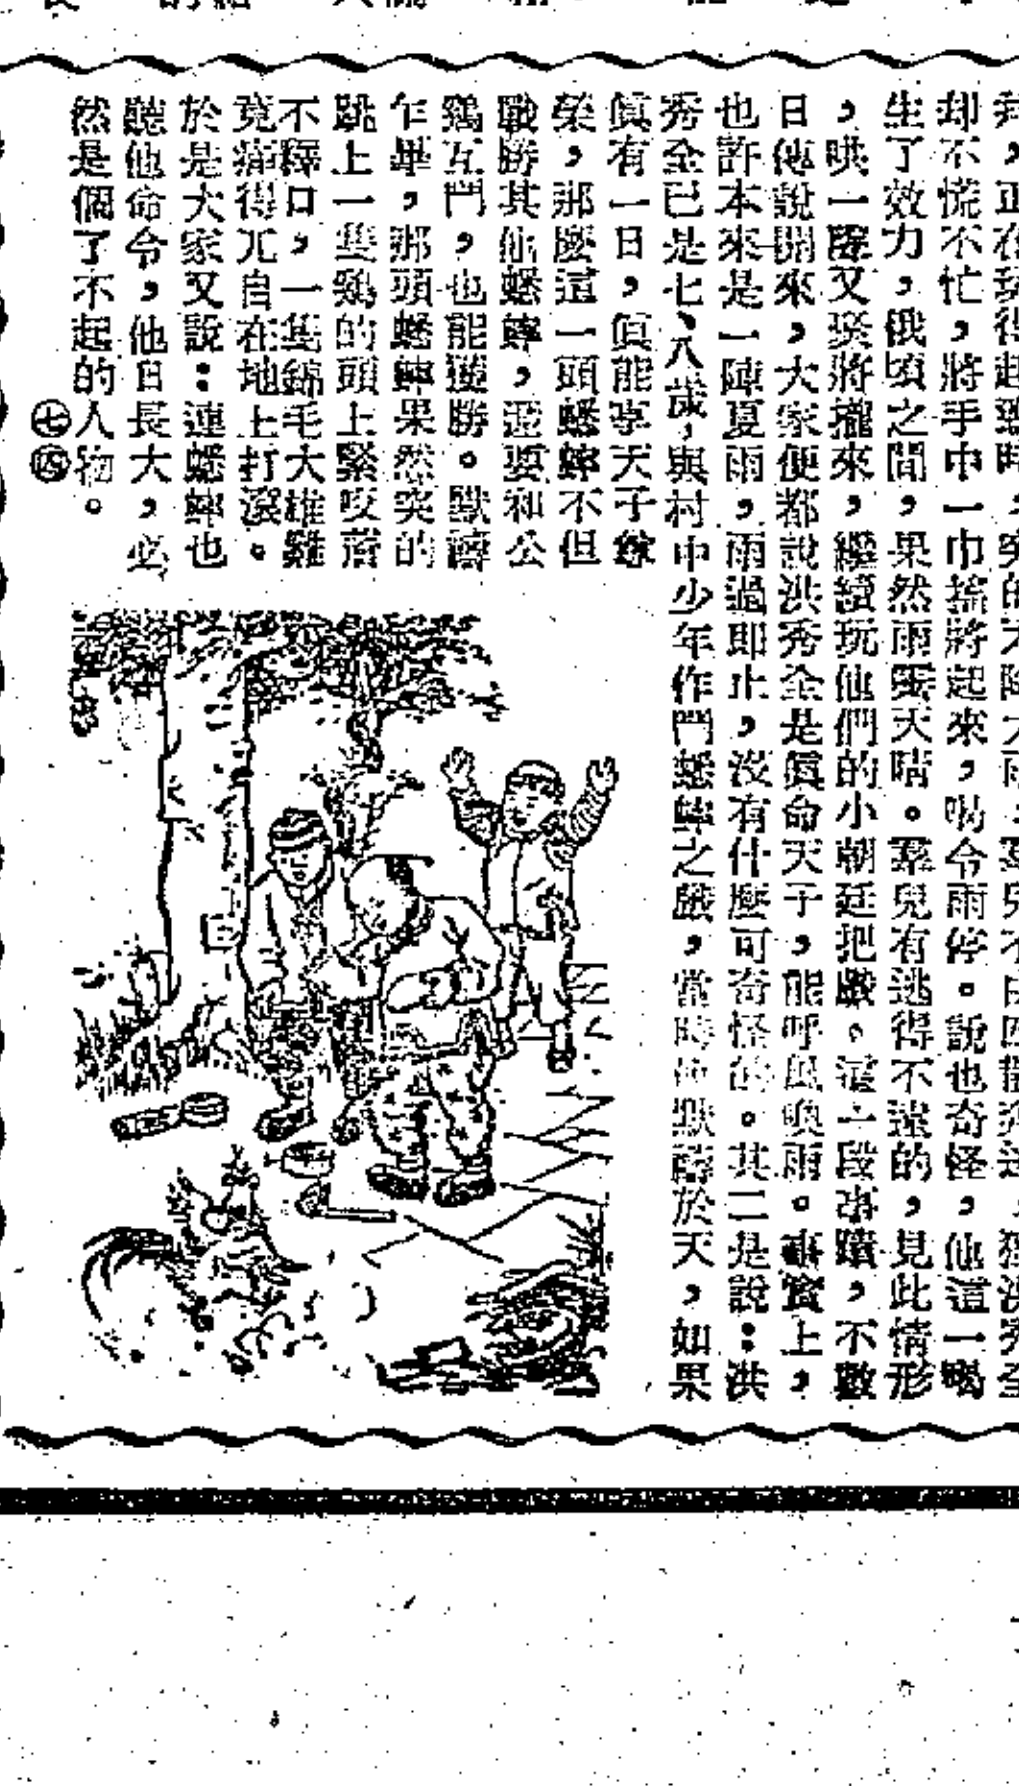 却不慌不忙，將手中一巾搖將起來，喝令雨停。說也奇怪，他這一喝
生了效力，俄頃之間，果然雨霽天晴。羣兒有逃得不遠的，見此情形
，哄一聲又聚將攏來，繼續玩他們的小朝廷把戲。這一段事蹟，不數
日傳說開來，大家便都說洪秀全是眞命天子，能呼風喚雨。事實上，
也許本來是一陣夏雨，雨過即止，沒有什麼可奇怪的。其二是說：洪
秀全已是七、八歲，與村中少年作鬥蟋蟀之戲，當時他默禱於天，如果
眞有一日，眞能享天子尊
榮，那麼這一頭蟋蟀不但
戰勝其他蟋蟀，還要和公
鷄互鬥，也能獲勝。默禱
乍畢，那頭蟋蟀果然突的
跳上一隻鷄的頭上緊咬着
不釋口，一隻錦毛大雄雞
竟痛得兀自在地上打滾。
於是大家又說：連蟋蟀也
聽他命令，他日長大，必
然是個了不起的人物。
㊆㊃